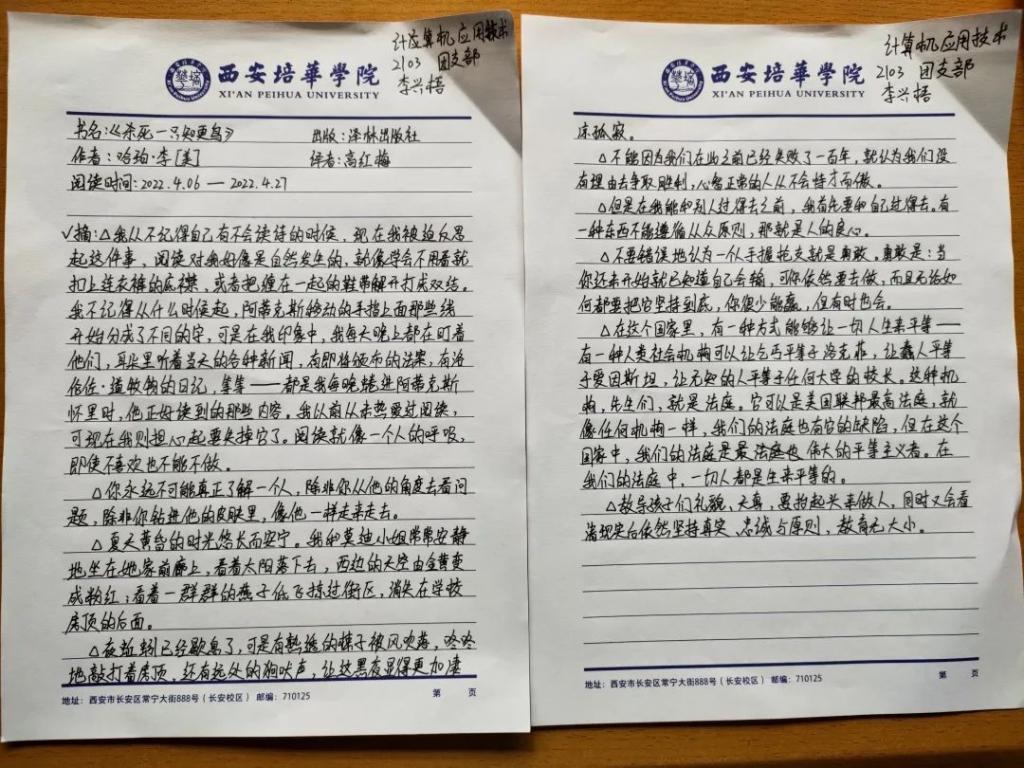 计应算机应用技术
2103 团支部
李兴梧
西安培華學院
XI'AN PEIHUA UNIVERSITY
书名:《杀死一只知更鸟》 出版:泽林出版社
作者:哈珀·李[美] 译者:高红梅
阅读时间:2022.4.06 — 2022.4.27
✓摘:△我从不记得自己有不会读诗的时候,现在我被迫反思
起这件事,阅读对我好像是自然发生的,就像学会不用看就
扣上连衣裤的底襟,或者把缠在一起的鞋带解开打成双结。
我不记得从什么时候起,阿蒂克斯移动的手指上面那些线
开始分成了不同的字,可是在我印象中,我每天晚上都在盯着
他们,耳朵里听着当天的各种新闻,有即将颁布的法案,有洛
伦佐·道牧物的日记,等等——都是我每晚矮进阿蒂克斯
怀里时,他正好读到的那些内容。我以前从未热爱过阅读,
可现在我则担心起要失掉它了。阅读就像一个人的呼吸,
即使不喜欢也不能不做。
△你永远不可能真正了解一个人,除非你从他的角度去看问
题,除非你钻进他的皮肤里,像他一样走来走去。
△夏天黄昏的时光悠长而安宁。我和莫迪小姐常常安静
地坐在她家前廊上,看着太阳落下去,西边的天空由金黄变
成粉红;看着一群群的燕子低飞掠过街区,消失在学校
房顶的后面。
△夜蚯蚓已经歇息了,可是有熟透的楝子被风吹落,咚咚
地敲打着房顶,还有远处的狗吠声,让这黑夜显得更加凄
地址:西安市长安区常宁大街888号(长安校区) 邮编:710125 第 页
计算机应用技术
2103 团支部
李兴梧
西安培華學院
XI'AN PEIHUA UNIVERSITY
凉孤寂。
△不能因为我们在此之前已经失败了一百年,就认为我们没
有理由去争取胜利,心智正常的人从不会恃才而傲。
△但是在我能和别人过得去之前,我首先要和自己过得去。有
一种东西不能遵循从众原则,那就是人的良心。
△不要错误地认为一个人手握枪支就是勇敢。勇敢是:当
你还未开始就已知道自己会输,可你依然要去做,而且无论如
何都要把它坚持到底,你很少能赢,但有时也会。
△在这个国家里,有一种方式能够让一切人生来平等——
有一种人类社会机构可以让乞丐平等于洛克菲,让蠢人平等
于爱因斯坦,让无知的人平等于任何大学的校长。这种机
构,先生们,就是法庭。它可以是美国联邦最高法庭,就
像任何机构一样,我们的法庭也有它的缺陷,但在这个
国家中,我们的法庭是最法庭也伟大的平等主义者。在
我们的法庭中,一切人都是生来平等的。
△教导孩子们礼貌、天真,要抬起头来做人,同时又会看
清现实后依然坚持真实、忠诚与原则,教育无大小。
地址:西安市长安区常宁大街888号(长安校区) 邮编:710125 第 页